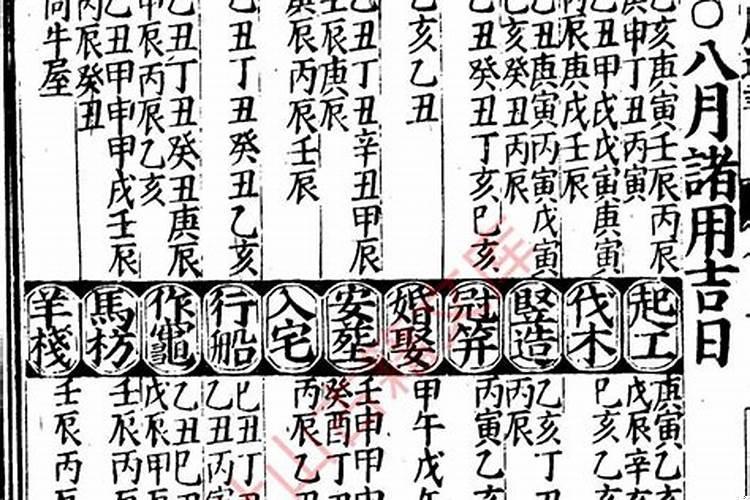 ○八月諸用吉日
乙亥庚寅壬辰丙辰
庚申丁丑丙寅
乙丑甲戌戊寅庚寅
丙辰庚戌壬辰
乙丑庚寅丙寅戊寅
乙亥癸丑丙辰
乙丑癸丑丁亥巳亥
乙亥乙丑
乙丑丁丑辛丑甲辰
壬辰庚辰
庚辰丙辰壬辰
乙丑丁丑癸丑乙亥
乙丑丁丑癸丑庚辰
甲辰丙辰乙亥
乙丑甲申甲戌壬辰
丙辰癸丑
同牛屋
起工
伐木
竪造
冠笄
婚娶
安葬
入宅
行船
作竈
馬枋
羊棧
庚寅乙
戊辰辛
巳亥乙
乙亥丁
丙辰
丙寅乙
甲午戊
壬申甲
癸酉丁
丙辰乙
巳丑丁
乙丑丙
乙丑巳
戊辰甲
壬辰丙
壬辰丙